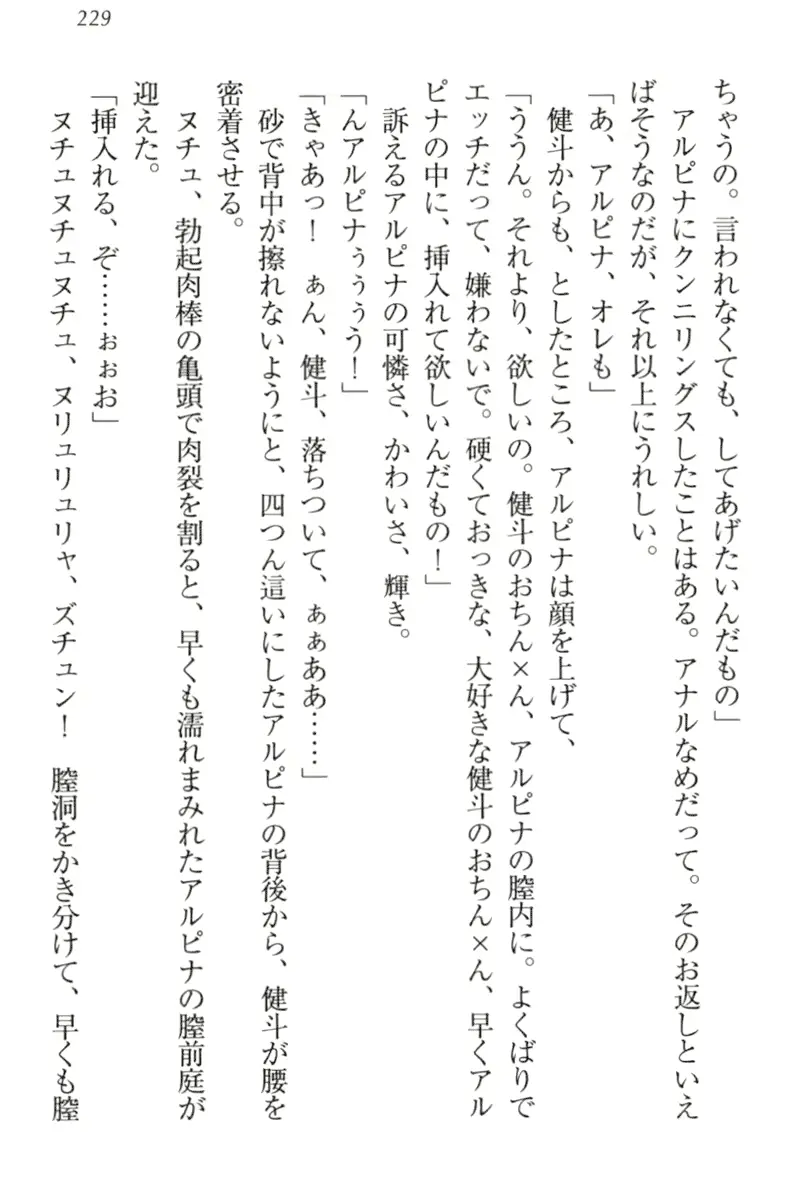 229
ちゃうの。言われなくても、してあげたいんだもの」
アルピナにクンニリングスしたことはある。アナルなめだって。そのお返しといえ
ばそうなのだが、それ以上にうれしい。
「あ、アルピナ、オレも」
健斗からも、としたところ、アルピナは顔を上げて、
「ううん。それより、欲しいの。健斗のおちん×ん、アルピナの膣内に。よくばりで
エッチだって、嫌わないで。硬くておっきな、大好きな健斗のおちん×ん、早くアル
ピナの中に、挿入れて欲しいんだもの！」
訴えるアルピナの可憐さ、かわいさ、輝き。
「んアルピナぅぅぅう！」
「きゃあっ！　ぁん、健斗、落ちついて、ぁぁああ……」
砂で背中が擦れないようにと、四つん這いにしたアルピナの背後から、健斗が腰を
密着させる。
ヌチュ、勃起肉棒の亀頭で肉裂を割ると、早くも濡れまみれたアルピナの膣前庭が
迎えた。
「挿入れる、ぞ……ぉぉお」
ヌチュヌチュヌチュ、ヌリュリュリャ、ズチュン！　膣洞をかき分けて、早くも膣